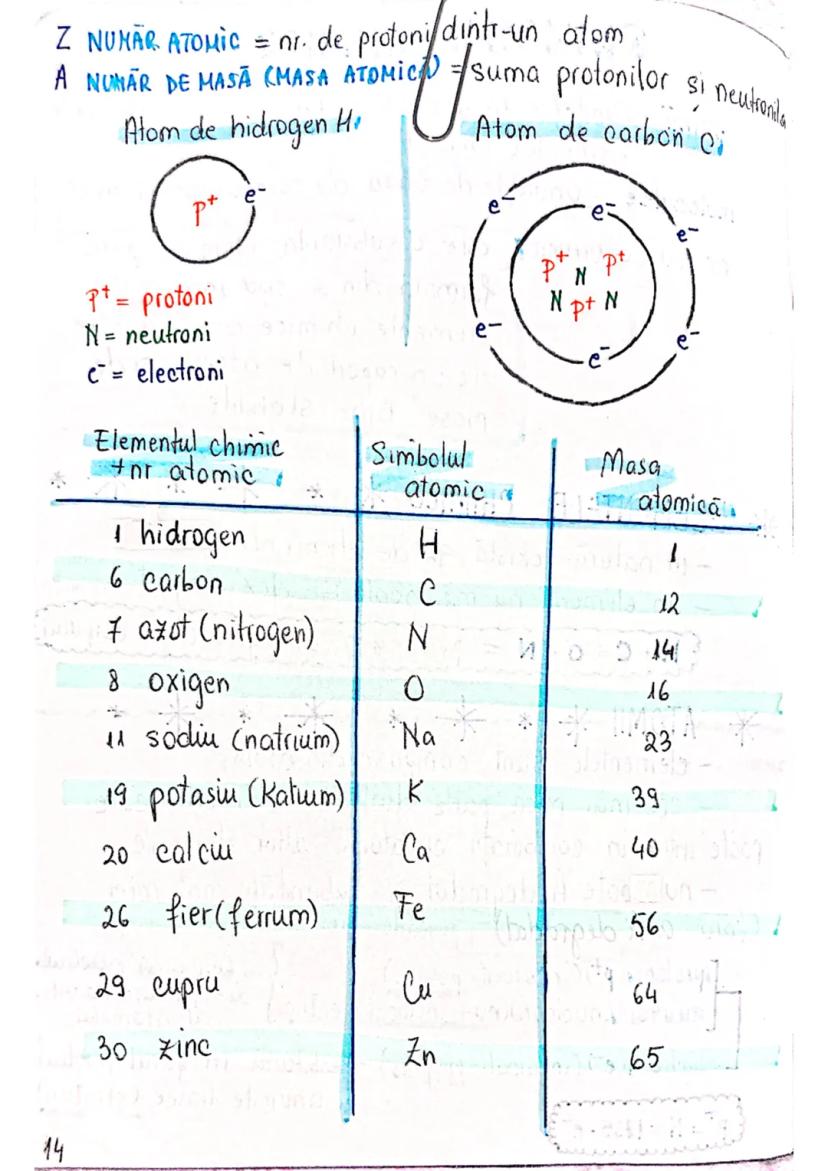 Z NUMĂR ATOMIC = nr. de protoni dintr-un atom
A NUMĂR DE MASĂ (MASA ATOMICĂ) = suma protonilor și neutronilo
Atom de hidrogen H
Atom de carbon C
p+ e-
e- e- e-
p+ N p+
N p+ N
e- e- e-
p+ = protoni
N = neutroni
e- = electroni
Elementul chimic + nr atomic
Simbolul atomic
Masa atomică
1 hidrogen H 1
6 carbon C 12
7 azot (nitrogen) N 14
8 oxigen O 16
11 sodiu (natrium) Na 23
19 potasiu (Kalium) K 39
20 calciu Ca 40
26 fier (ferrum) Fe 56
29 cupru Cu 64
30 zinc Zn 65
14